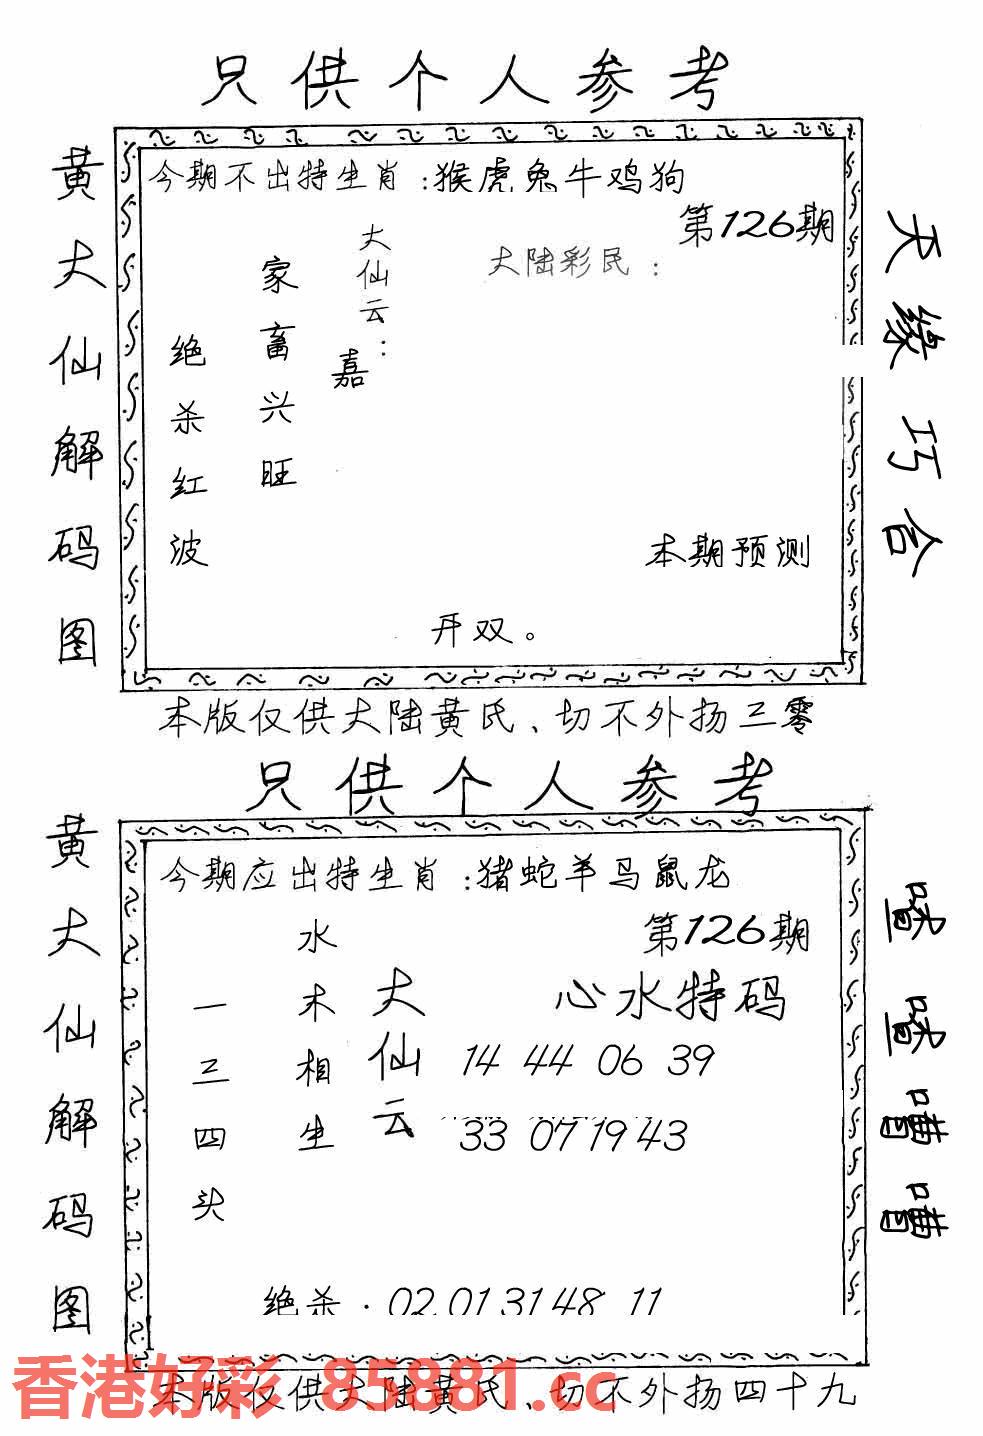 只供个人参考
黄大仙解码图
今期不出特生肖:猴虎兔牛鸡狗
第126期
大仙云:
大陆彩民:
家畜兴旺
嘉
绝杀红波
本期预测
开双。
天缘巧合
本版仅供大陆黄氏、切不外扬三零
只供个人参考
黄大仙解码图
今期应出特生肖:猪蛇羊马鼠龙
第126期
水木相生
一三四头
大仙云
心水特码
14 44 06 39
33 07 19 43
绝杀.02 01 31 48 11
香港好彩 85881.cc
本版仅供大陆黄氏、切不外扬四十九